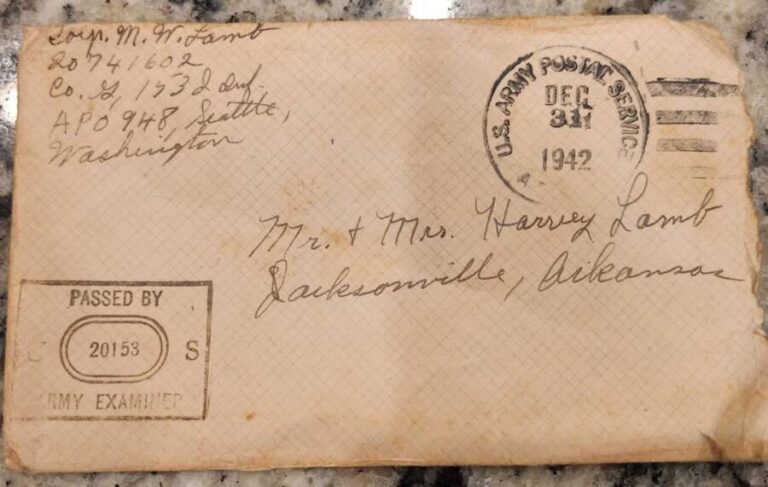 Corp. M. W. Lamb
20741602
Co. G, 153d Inf.
APO 948, Seattle,
Washington
U.S. ARMY POSTAL SERVICE
DEC
31
1942
Mr. & Mrs. Harvey Lamb
Jacksonville, Arkansas
PASSED BY
20153
S
ARMY EXAMINER